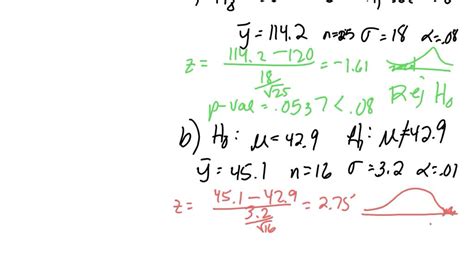 ȳ = 114.2 n=25 σ = 18 α=.08
z = (114.2 - 120) / (18/√25) = -1.61
Rej H₀
p-val = .0537 < .08
b) H₀: μ = 42.9 μ≠42.9
ȳ = 45.1 n=16 σ = 3.2 α=.01
z = (45.1 - 42.9) / (3.2/√16) = 2.75